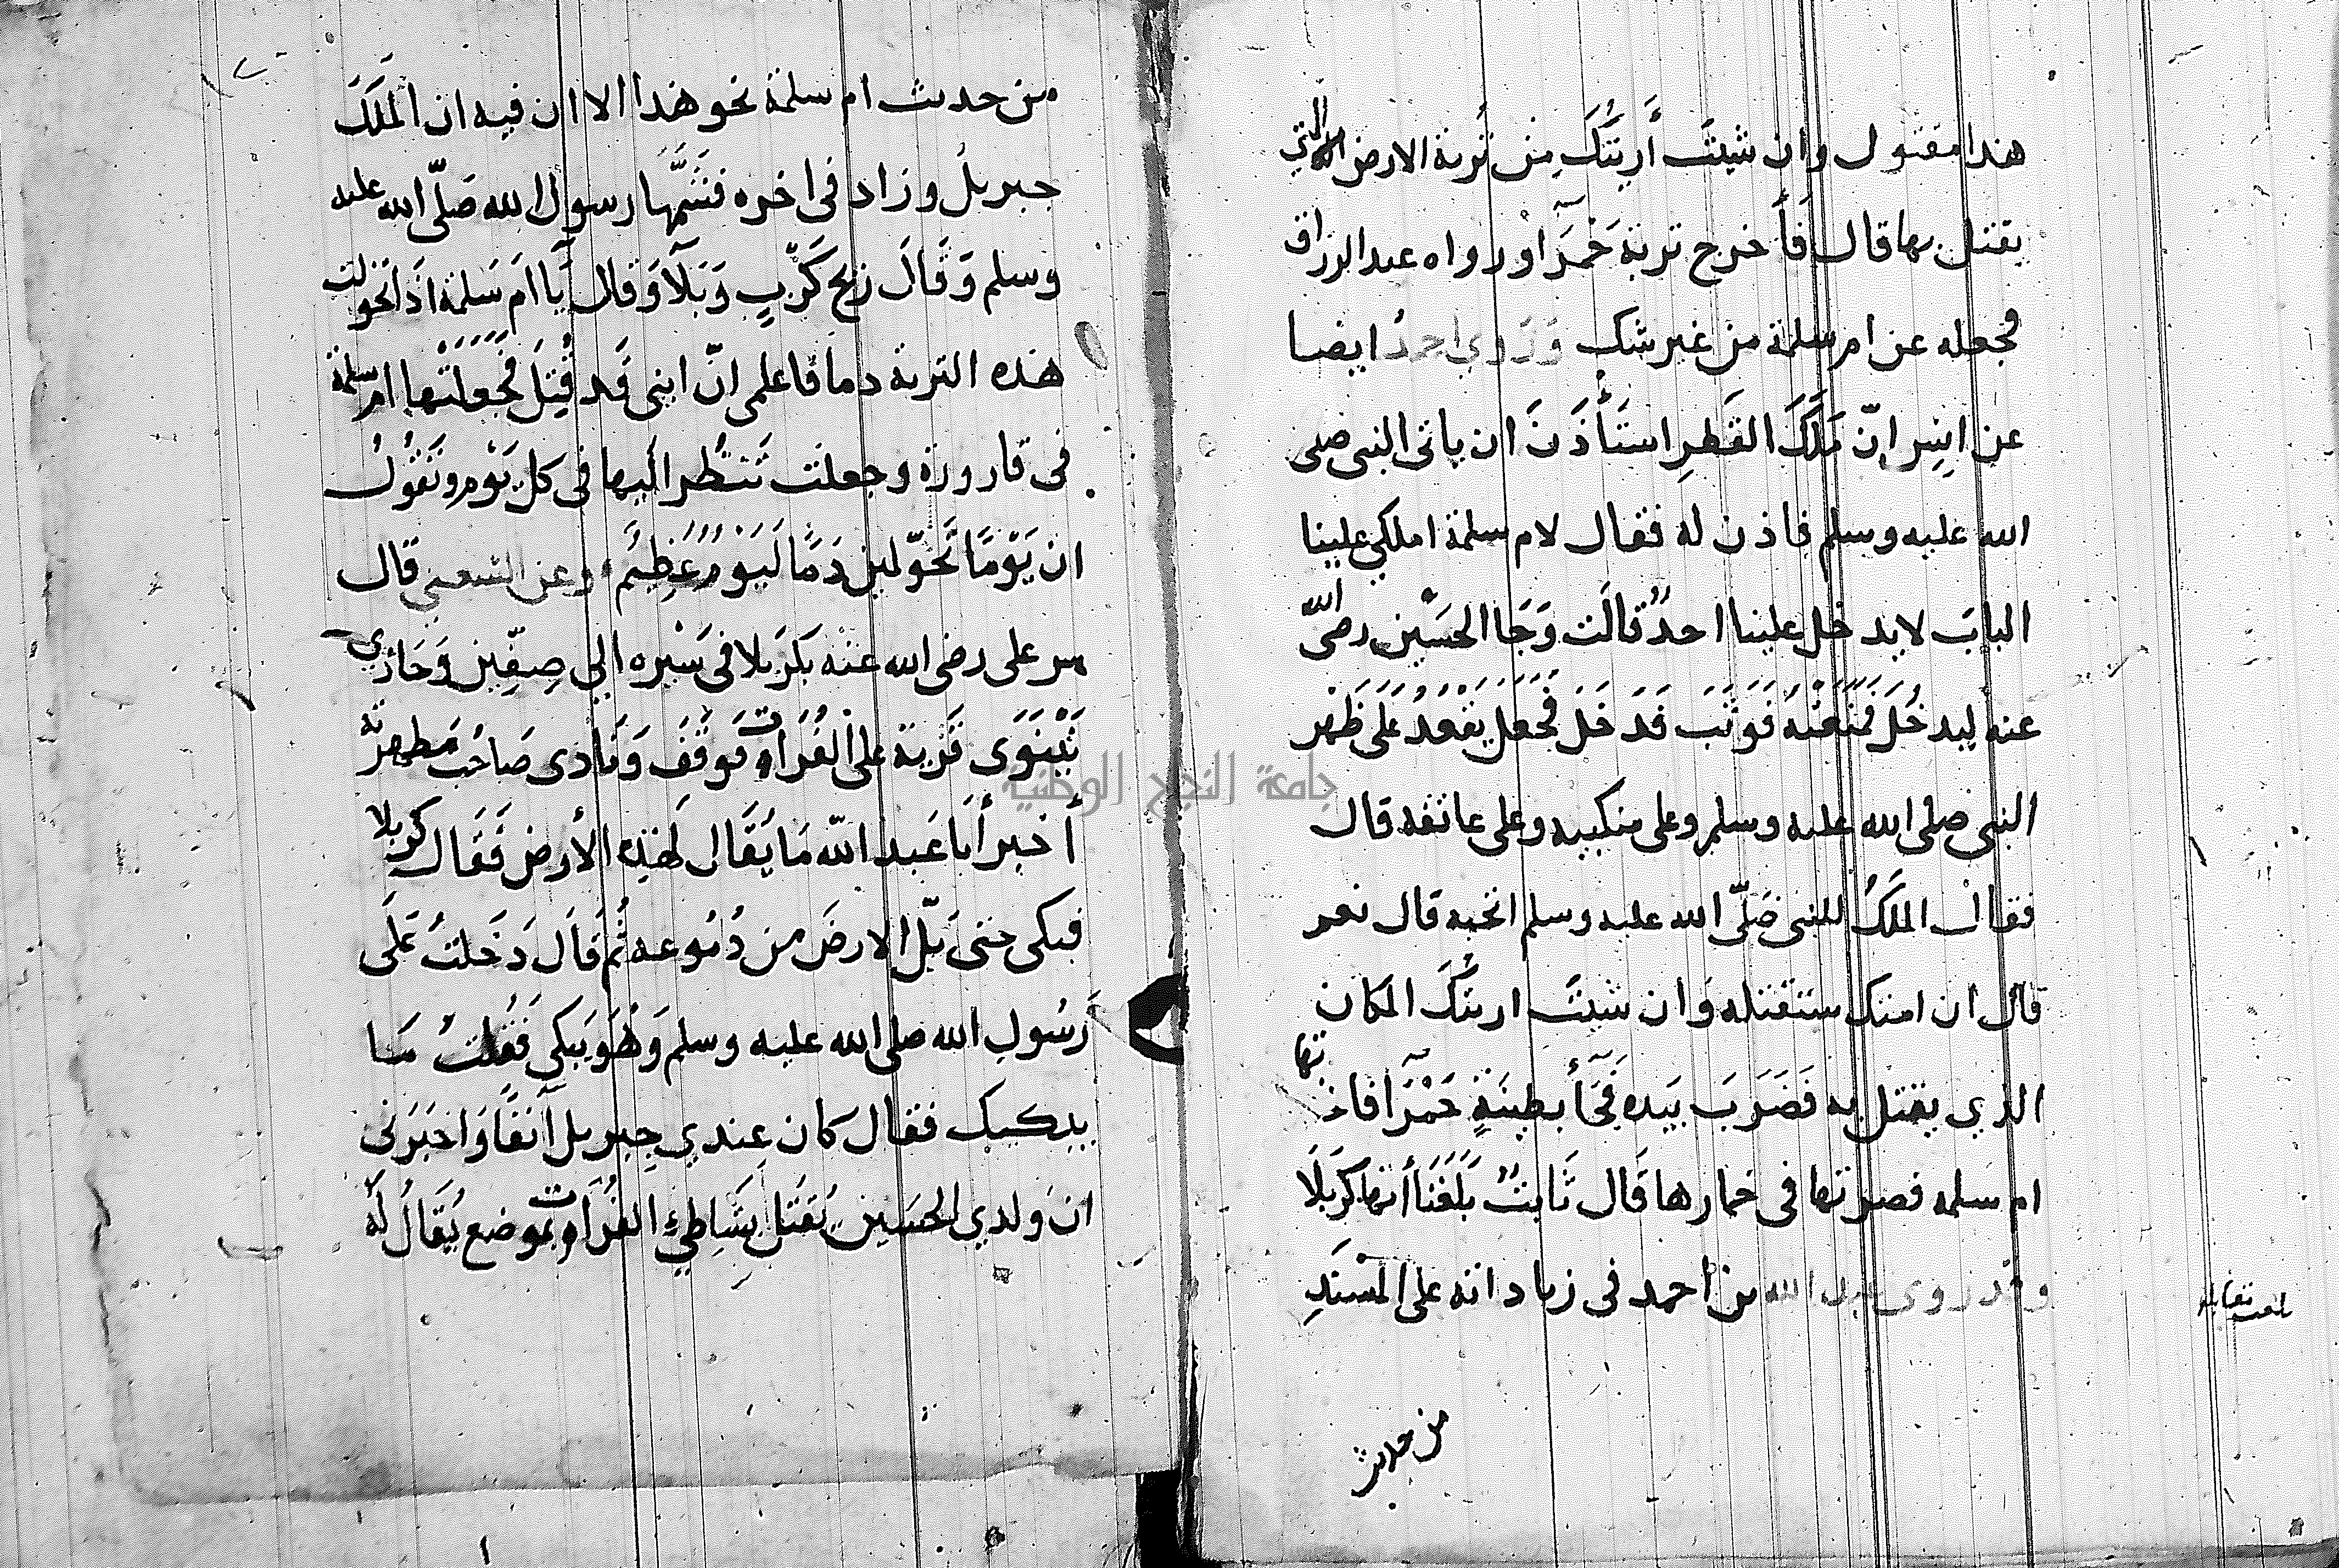 هذا مقتول وان شيت أَرَيْتُكَ مِن تُربة الارض التي
يقتل بها قال فَأَخرج تربة حَمْرَآ ورواه عبد الرزاق
فجعله عن ام سلمة من غير شك وَرَوي احمدُ ايضا
عن انسٍ انّ مَلَكَ القَطرِ استَأْذَنَ ان ياتى النبى صلى
الله عليه وسلم فاذن له فقال لام سلمة املكي علينا
البابَ لايدخل علينا احدٌ قالَت وَجَا الحسَين رضى الله
عنه ليدخُلَ فمَنَعَتْهُ فَوَثَبَ فَدَخَلَ فَجَعَلَ يَقْعُدُ عَلَى ظَهْر
النبى صلى الله عليه وسلم وعلى منكبيه وعلى عاتقه قال
فقال الملَكُ للنبى صَلّى الله عليه وسلم اتحبه قال نعم
قال ان امتك ستقتله وَان شيتَ اريتُكَ المكان
الذي يقتل به فَضَرَبَ بَيده فَجَآءَ بطينَةٍ حَمْرَآ فاخذتها
ام سلمه فصرتها فى خمارها قَال ثَابتٌ بَلَغَنَا أَنها كَربَلَا
وقد روى عبد الله بن أحمد فى زياداته على المسْنَدِ
بلغت مقابله
من حديث
من حديث ام سلمة نحو هذا الا ان فيه ان المَلَكَ
جبريل وزاد فى اخره فَشَمَّهَا رسول الله صَلّى الله عليه
وسلم وَقَالَ رَيح كَرْبٍ وَبَلَآ وَقال يَا امَ سَلمة اذَا تحولت
هذه التربة دمًا فاعلمى انّ ابنى قَد قُتِلَ فَجَعَلَتْها ام سلمة
فى قارورة وجعلت تَنظُر اليها فى كل يَوْم وتَقُولُ
ان يَوْمًا تَحَوّلين دَمًا لَيَوْمٌ عَظِيمٌ وعن الشعبى قال
مر على رضى الله عنه بكَربَلا فى سَيْره الي صِفِّين وَحَاذي
نَيْنَوَى قَرية على الفُرَات فوقَفَ وَنَادى صَاحُب مَطهرته
أَخبر أَبَا عَبد اللّه مَا يُقَال لَهذِه الأرض فَقَال كربلا
فبكى حتى بَلّ الارضَ من دُمُوعه ثُمَ قَالَ دَخَلتُ عَلَى
رَسُول الله صلى الله عليه وسلم وَهُوَ يَبكى فَقُلتُ مَا
يبكيك فقال كان عِندي جِبريل آنفًا وَاخبَرَنى
انَ وَلدي الحسَين يُقتَل بشَاطِئِ الفُرَات بموضع يُقَالُ لَه
جامعة النجاح الوطنية